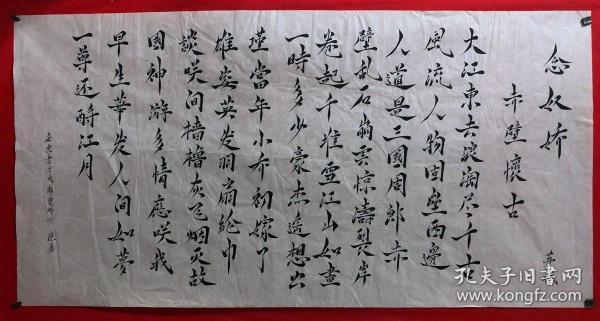 念奴娇
赤壁懷古
大江東去浪淘尽千古
風流人物固壘西邊
人道是三國周郎赤
壁乱石崩雲惊濤裂岸
卷起千堆雪江山如畫
一時多少豪杰遥想公
瑾當年小乔初嫁了
雄姿英发羽扇纶巾
談笑间樯櫓灰飞烟灭故
國神游多情應笑我
早生華发人间如夢
一尊还酹江月
孔夫子旧书网
www.kongfz.com